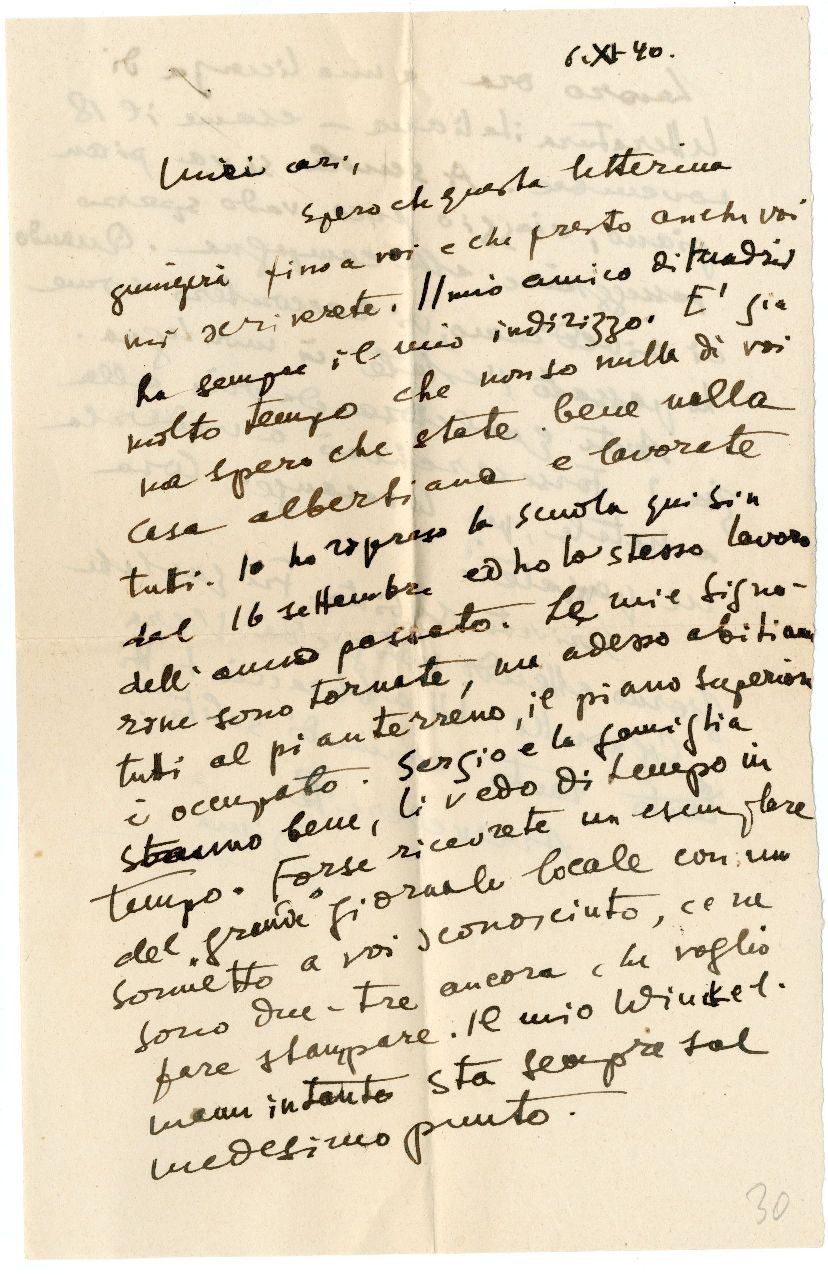 6.XI.40.
Miei cari,
spero che questa letterina
giungerà fino a voi e che presto anche voi
mi scriverete. Il mio amico di Madrid
ha sempre il mio indirizzo. E' già
molto tempo che non so nulla di voi
ma spero che state bene nella
casa albertiana e lavorate
tutti. Io ho ripreso la scuola qui sin
dal 16 settembre ed ho lo stesso lavoro
dell'anno passato. Le mie signo-
rine sono tornate, ma adesso abitiamo
tutti al pianterreno, il piano superiore
è occupato. Sergio e la famiglia
stanno bene, li vedo di tempo in
tempo. Forse riceverete un esemplare
del "grande" giornale locale con un
sonetto a voi sconosciuto, ce ne
sono due-tre ancora che voglio
fare stampare. Il mio Winckel-
mann intanto sta sempre sul
medesimo punto.
30